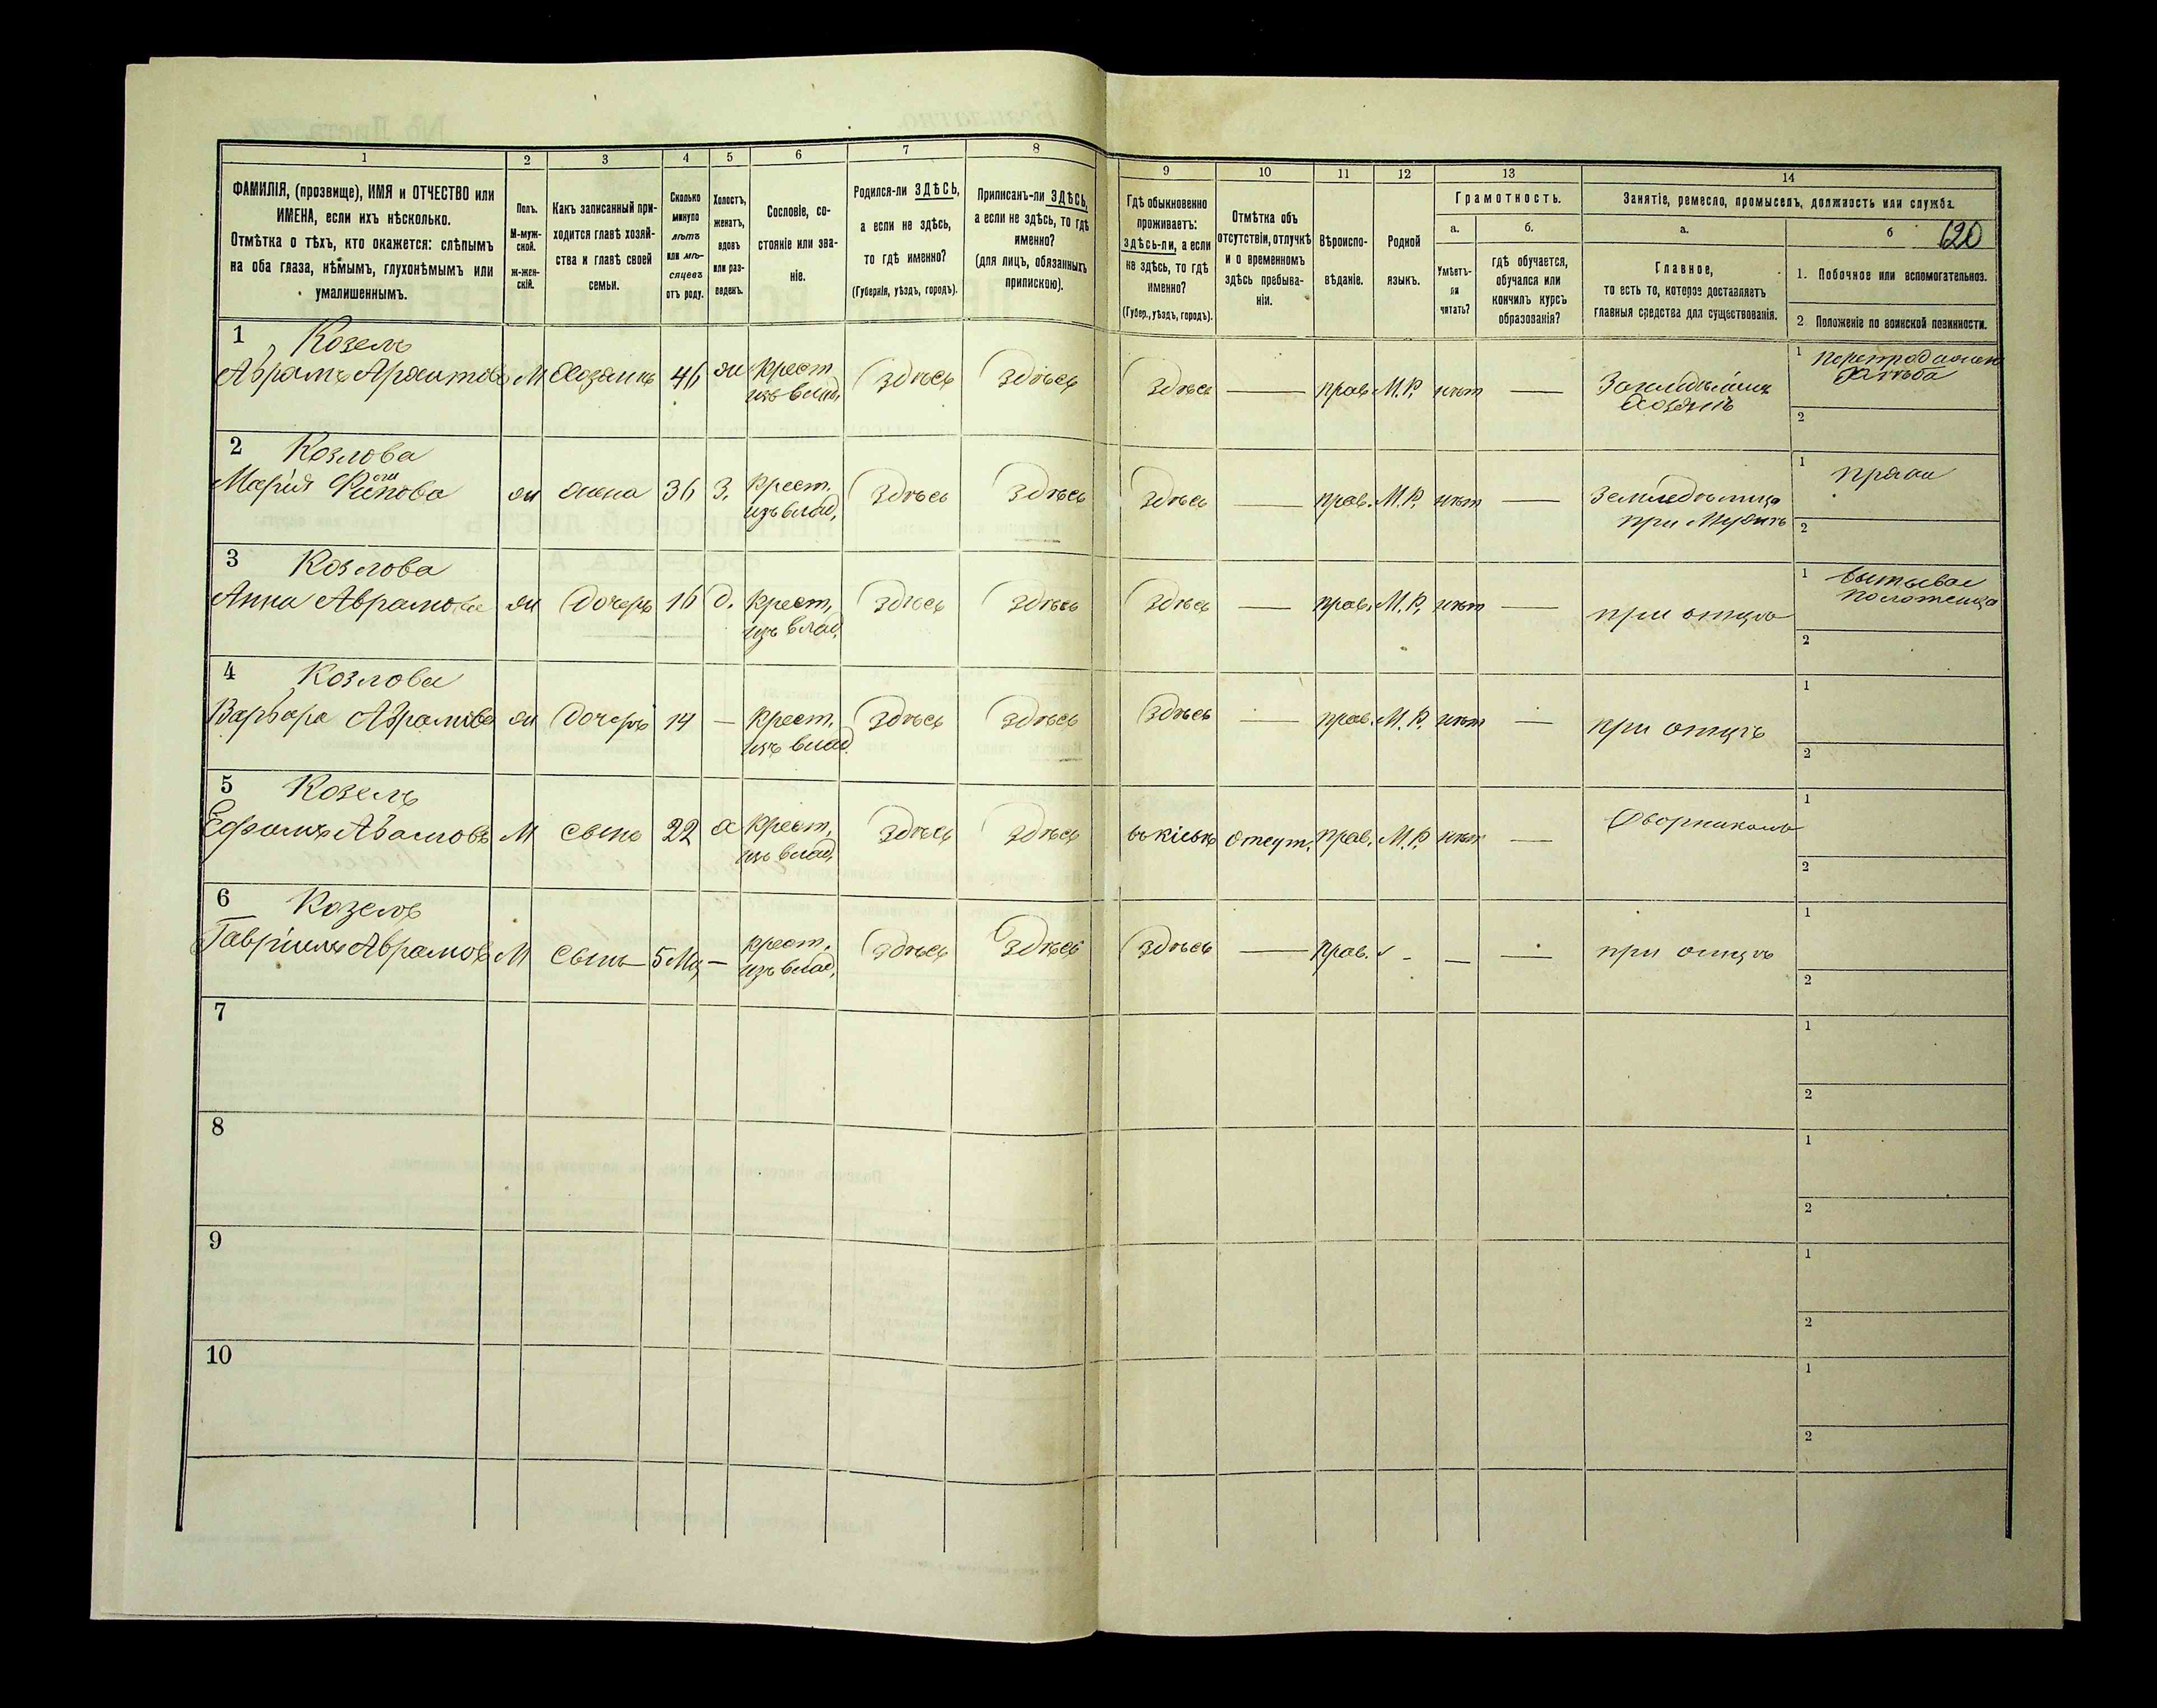 1 2 3 4 5 6 7 8 9 10 11 12 13 14
ФАМИЛІЯ, (прозвище), ИМЯ и ОТЧЕСТВО или
ИМЕНА, если ихъ нѣсколько.
Отмѣтка о тѣхъ, кто окажется: слѣпымъ
на оба глаза, нѣмымъ, глухонѣмымъ или
умалишеннымъ.
Полъ.
М-муж-
ской.
ж-жен-
скій.
Какъ записанный при-
ходится главѣ хозяй-
ства и главѣ своей
семьи.
Сколько
минуло
лѣтъ
или мѣ-
сяцевъ
отъ роду.
Холостъ,
женатъ,
вдовъ
или раз-
веденъ.
Сословіе, со-
стояніе или зва-
ніе.
Родился-ли ЗДѢСЬ,
а если не здѣсь,
то гдѣ именно?
(Губернія, уѣздъ, городъ).
Приписанъ-ли ЗДѢСЬ,
а если не здѣсь, то гдѣ
именно?
(для лицъ, обязанныхъ
припискою).
Гдѣ обыкновенно
проживаетъ:
здѣсь-ли, а если
не здѣсь, то гдѣ
именно?
(Губер., уѣздъ, городъ).
Отмѣтка объ
отсутствіи, отлучкѣ
и о временномъ
здѣсь пребыва-
ніи.
Вѣроиспо-
вѣданіе.
Родной
языкъ.
Грамотность.
а.
Умѣетъ-
ли
читать?
б.
гдѣ обучается,
обучался или
кончилъ курсъ
образованія?
Занятіе, ремесло, промыселъ, должность или служба.
а.
Главное,
то есть то, которое доставляетъ
главныя средства для существованія.
б 620
1. Побочное или вспомогательное.
2 Положеніе по воинской повинности.
1 Козелъ
Аврамъ М Хозяинъ 46 ж крест.
изъ влад. здѣсь здѣсь здѣсь — прав. М.Р. нѣт —
хозяинъ
1
2
2 Козлова
Марія ж жена 36 З. крест.
изъ влад. здѣсь здѣсь здѣсь — прав. М.Р. нѣт — Земледѣлица
при мужѣ
1 пряжа
2
3 Козлова
Анна Аврамова ж дочерь 16 д. крест.
изъ влад. здѣсь здѣсь здѣсь — прав. М.Р. нѣт — при отцѣ
1
2
4 Козлова
Варвара Аврамова ж дочерь 14 — крест.
изъ влад. здѣсь здѣсь здѣсь — прав. М.Р. нѣт — при отцѣ
1
2
5 Козелъ
М сынъ 22 х крест.
изъ влад. здѣсь здѣсь въ кіевѣ отсут. прав. М.Р. нѣт — Дворникомъ
1
2
6 Козелъ
Гавріилъ Аврамовъ М сынъ 5 мц — крест.
изъ влад. здѣсь здѣсь здѣсь — прав. - — — при отцѣ
1
2
7
1
2
8
1
2
9
1
2
10
1
2